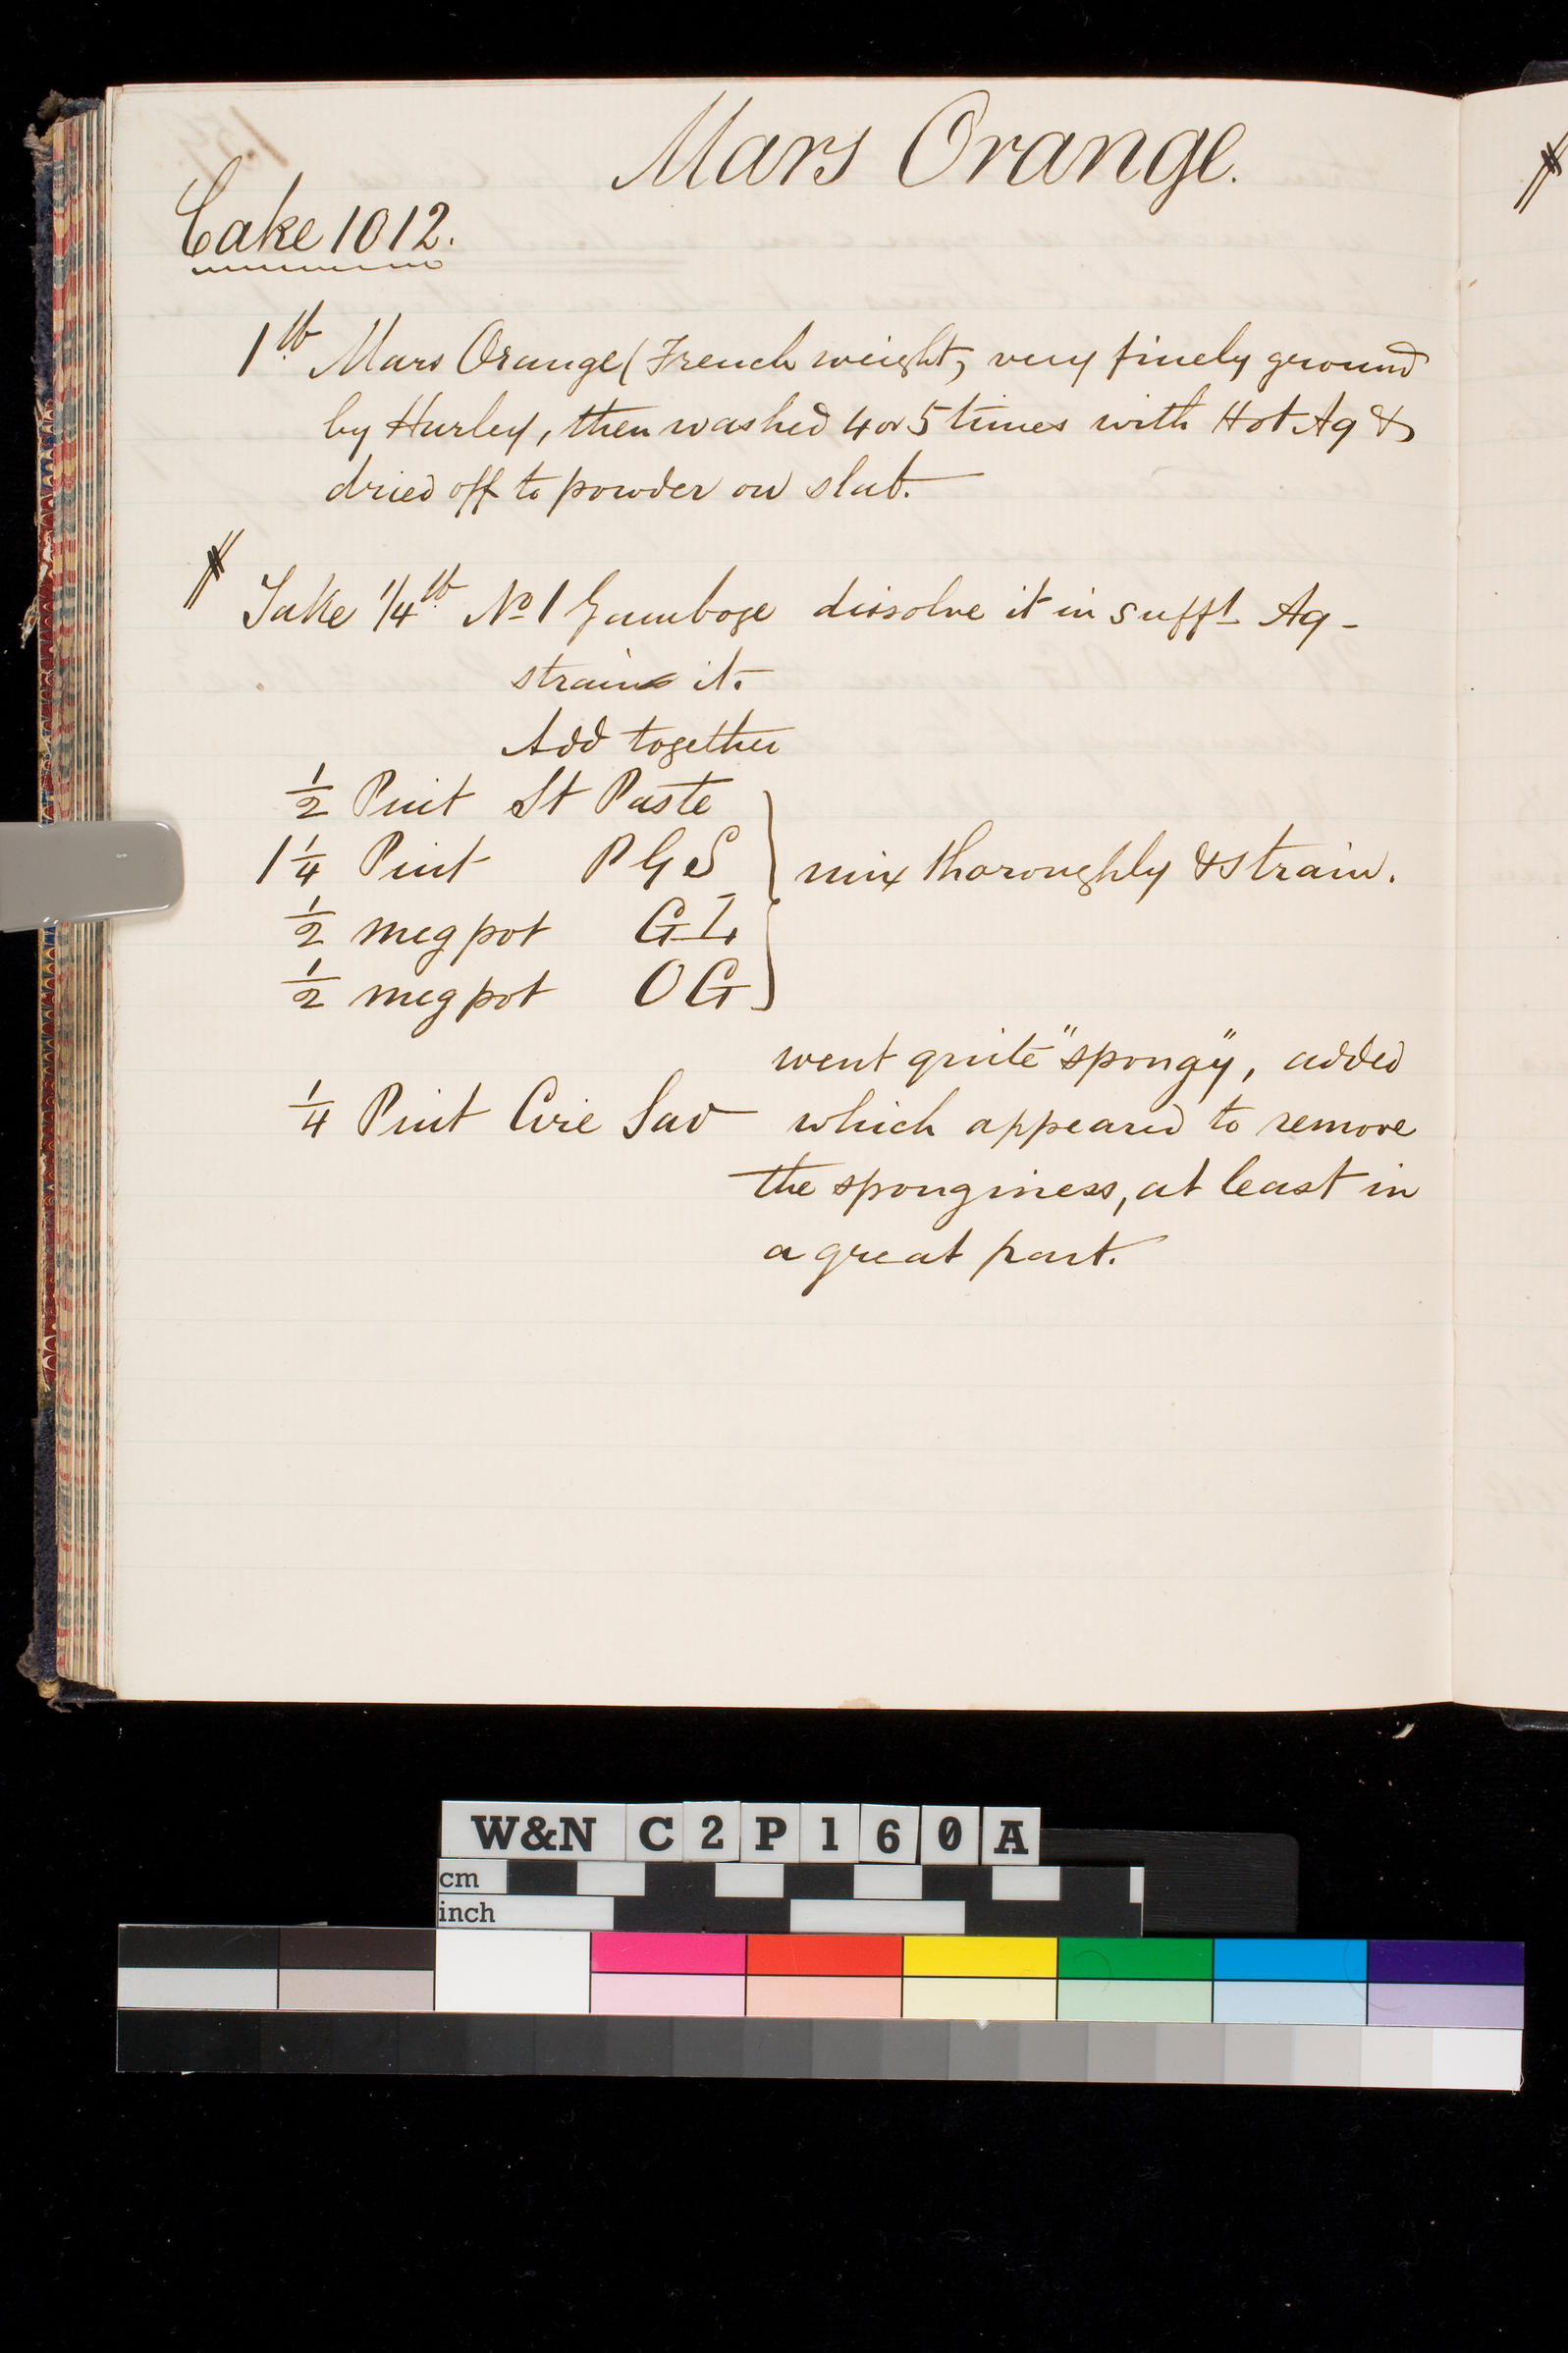 Mars Orange.
Cake 1012.
1 lb Mars Orange (French weight, very finely ground
by Hurley, then washed 4 or 5 times with Hot Aq &
dried off to powder on slab.
Take 1/4 lb No 1 Gamboge dissolve it in sufft Aq -
strain it.
Add together
1/2 Pint St Paste
1 1/4 Pint P G S } mix thoroughly & strain.
1/2 meg pot
1/2 meg pot O G
went quite "spongy", added
1/4 Pint Cire Sav which appeared to remove
the sponginess, at least in
a great part.
W&N C2P160A
cm
inch